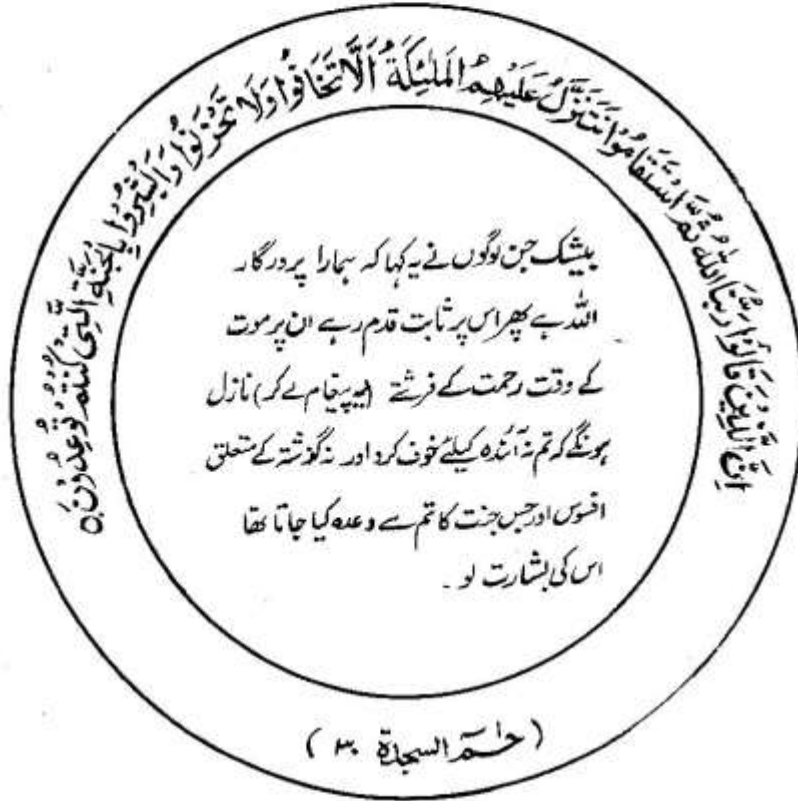 اِنَّ الَّذِيْنَ قَالُوْا رَبُّنَا اللّٰهُ ثُمَّ اسْتَقَامُوْا تَتَنَزَّلُ عَلَيْهِمُ الْمَلٰٓئِكَةُ اَلَّا تَخَافُوْا وَلَا تَحْزَنُوْا وَاَبْشِرُوْا بِالْجَنَّةِ الَّتِيْ كُنْتُمْ تُوْعَدُوْنَ ٥
بیشک جن لوگوں نے یہ کہا کہ ہمارا پروردگار
اللہ ہے پھر اس پر ثابت قدم رہے ان پر موت
کے وقت رحمت کے فرشتے (یہ پیغام لے کر) نازل
ہونگے کہ تم نہ آئندہ کیلئے خوف کرو اور نہ گوشتہ کے متعلق
افسوس اور جس جنت کا تم سے وعدہ کیا جاتا تھا
اس کی بشارت لو ۔
(حٰمٓ السجدۃ ۳۰)